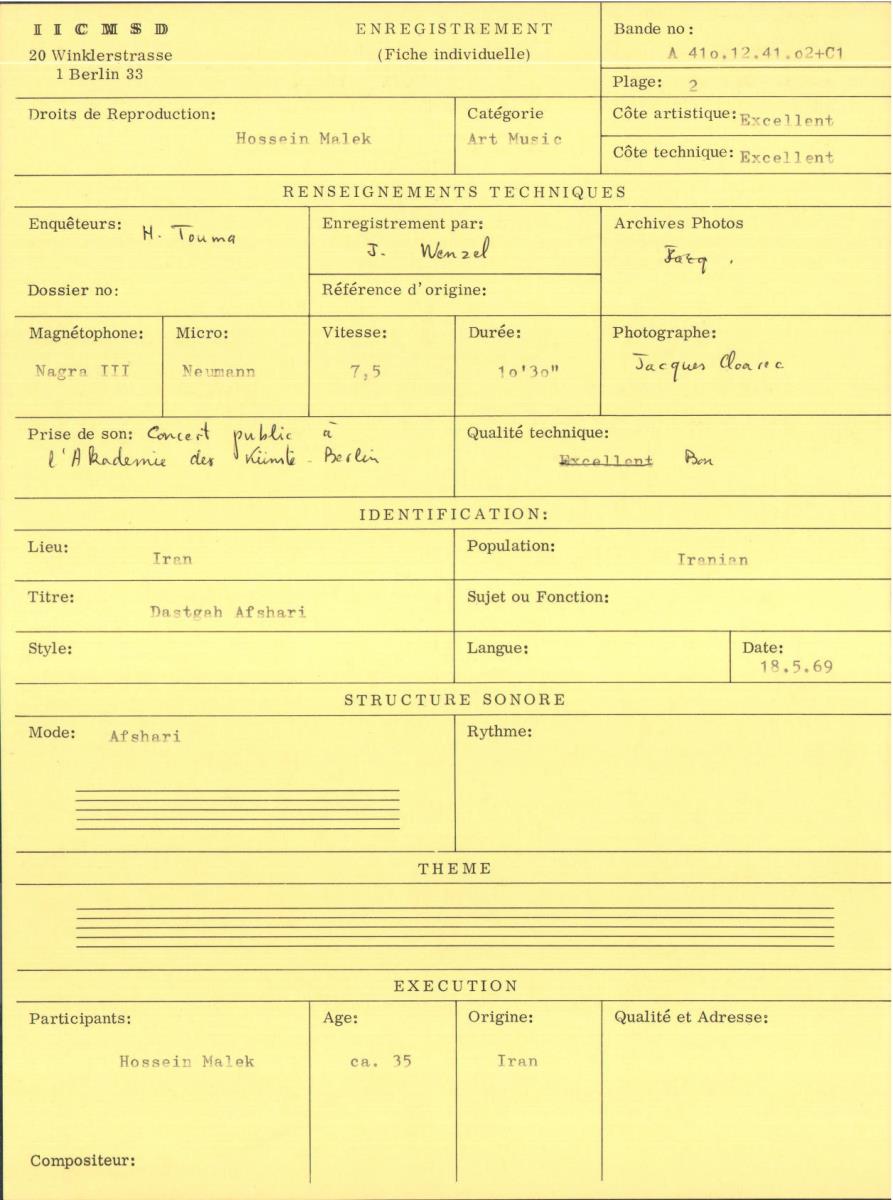 I I C M S D
20 Winklerstrasse
1 Berlin 33
ENREGISTREMENT
(Fiche individuelle)
Bande no:
A 41o.12.41.o2+C1
Plage: 2
Droits de Reproduction:
Hossein Malek
Catégorie
Art Music
Côte artistique: Excellent
Côte technique: Excellent
RENSEIGNEMENTS TECHNIQUES
Enquêteurs: H. Touma
Dossier no:
Enregistrement par:
J. Wenzel
Référence d'origine:
Archives Photos
Magnétophone:
Nagra III
Micro:
Neumann
Vitesse:
7,5
Durée:
1o'3o"
Photographe:
Jacques Cloarec
Prise de son: Concert public à
l'Akademie der Künste - Berlin
Qualité technique:
Excellent Bon
IDENTIFICATION:
Lieu:
Iran
Population:
Iranian
Titre:
Dastgah Afshari
Sujet ou Fonction:
Style:
Langue:
Date:
18.5.69
STRUCTURE SONORE
Mode: Afshari
Rythme:
THEME
EXECUTION
Participants:
Hossein Malek
Age:
ca. 35
Origine:
Iran
Qualité et Adresse:
Compositeur: